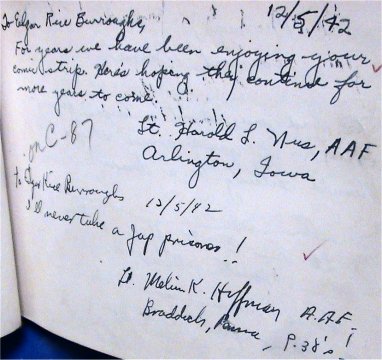 12/5/42
To Edgar Rice Burroughs,
For years we have been enjoying your
comic strip. Here's hoping they continue for
more years to come.
Lt. Harold L. Nus, AAF
Arlington, Iowa
on C-87
To Edgar Rice Burroughs
12/5/42
I'll never take a Jap prisoner!
Lt. Melvin K. Hoffman A.A.F.!
Braddock, Penna, P.38's